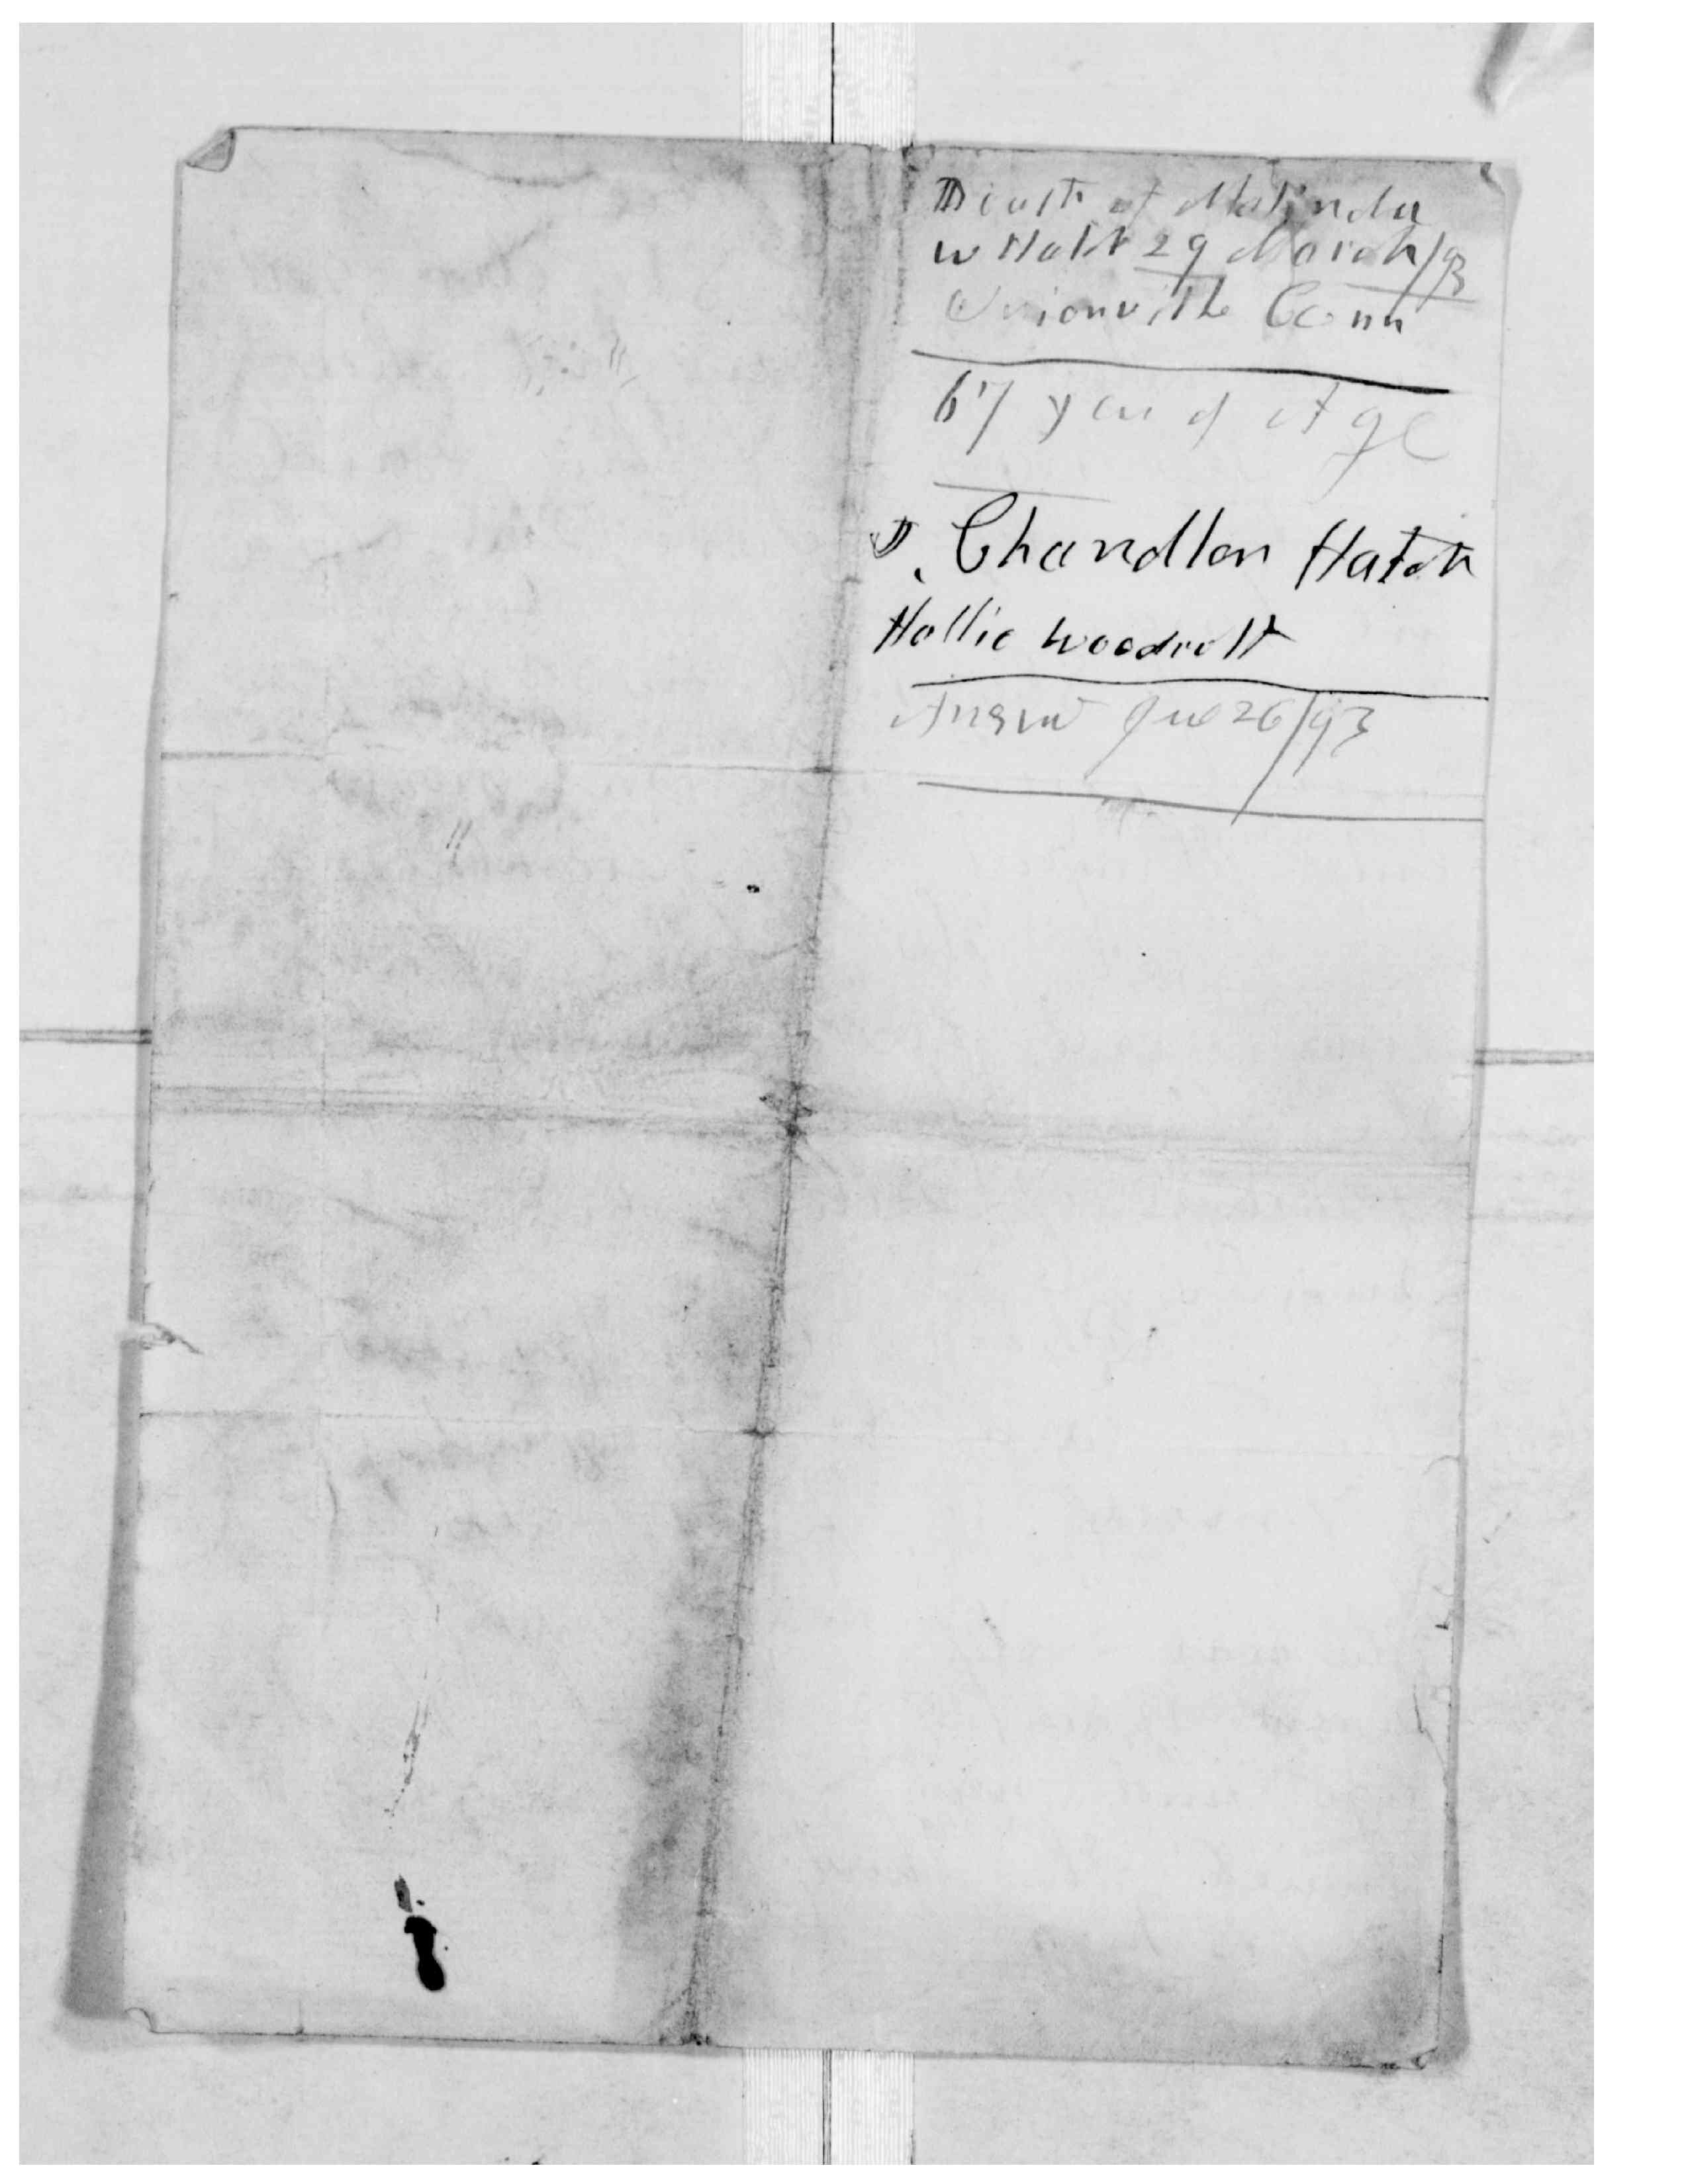 Death of Malinda
w Hatch 29 March/93
Unionville Conn
67 year of Age
D. Chandler Hatch
Hollie Woodruff
Answ Jue 26/93